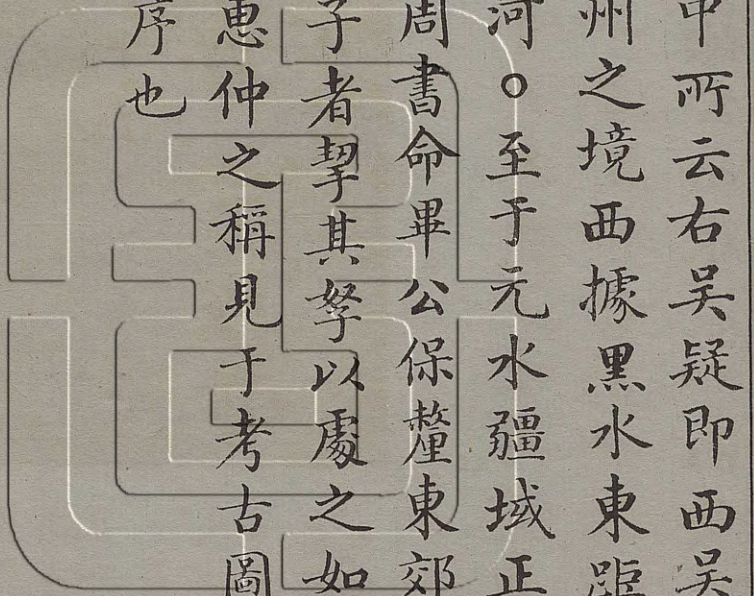 中所云右吴疑即西吴
州之境西據黒水東距
河○至于元水疆域正
周書命畢公保釐東郊
子者挈其孥以處之如
惠仲之稱見于考古圖
序也